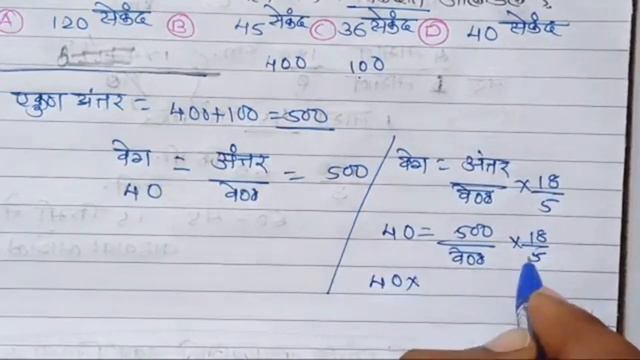 A 120 सेकंद B 45 सेकंद C 36 सेकंद D 40 सेकंद
400 100
एकुण अंतर = 400+100 = 500
वेग = अंतर / वेळ = 500
40
वेग = अंतर / वेळ × 18/5
40 = 500 / वेळ × 18/5
40×